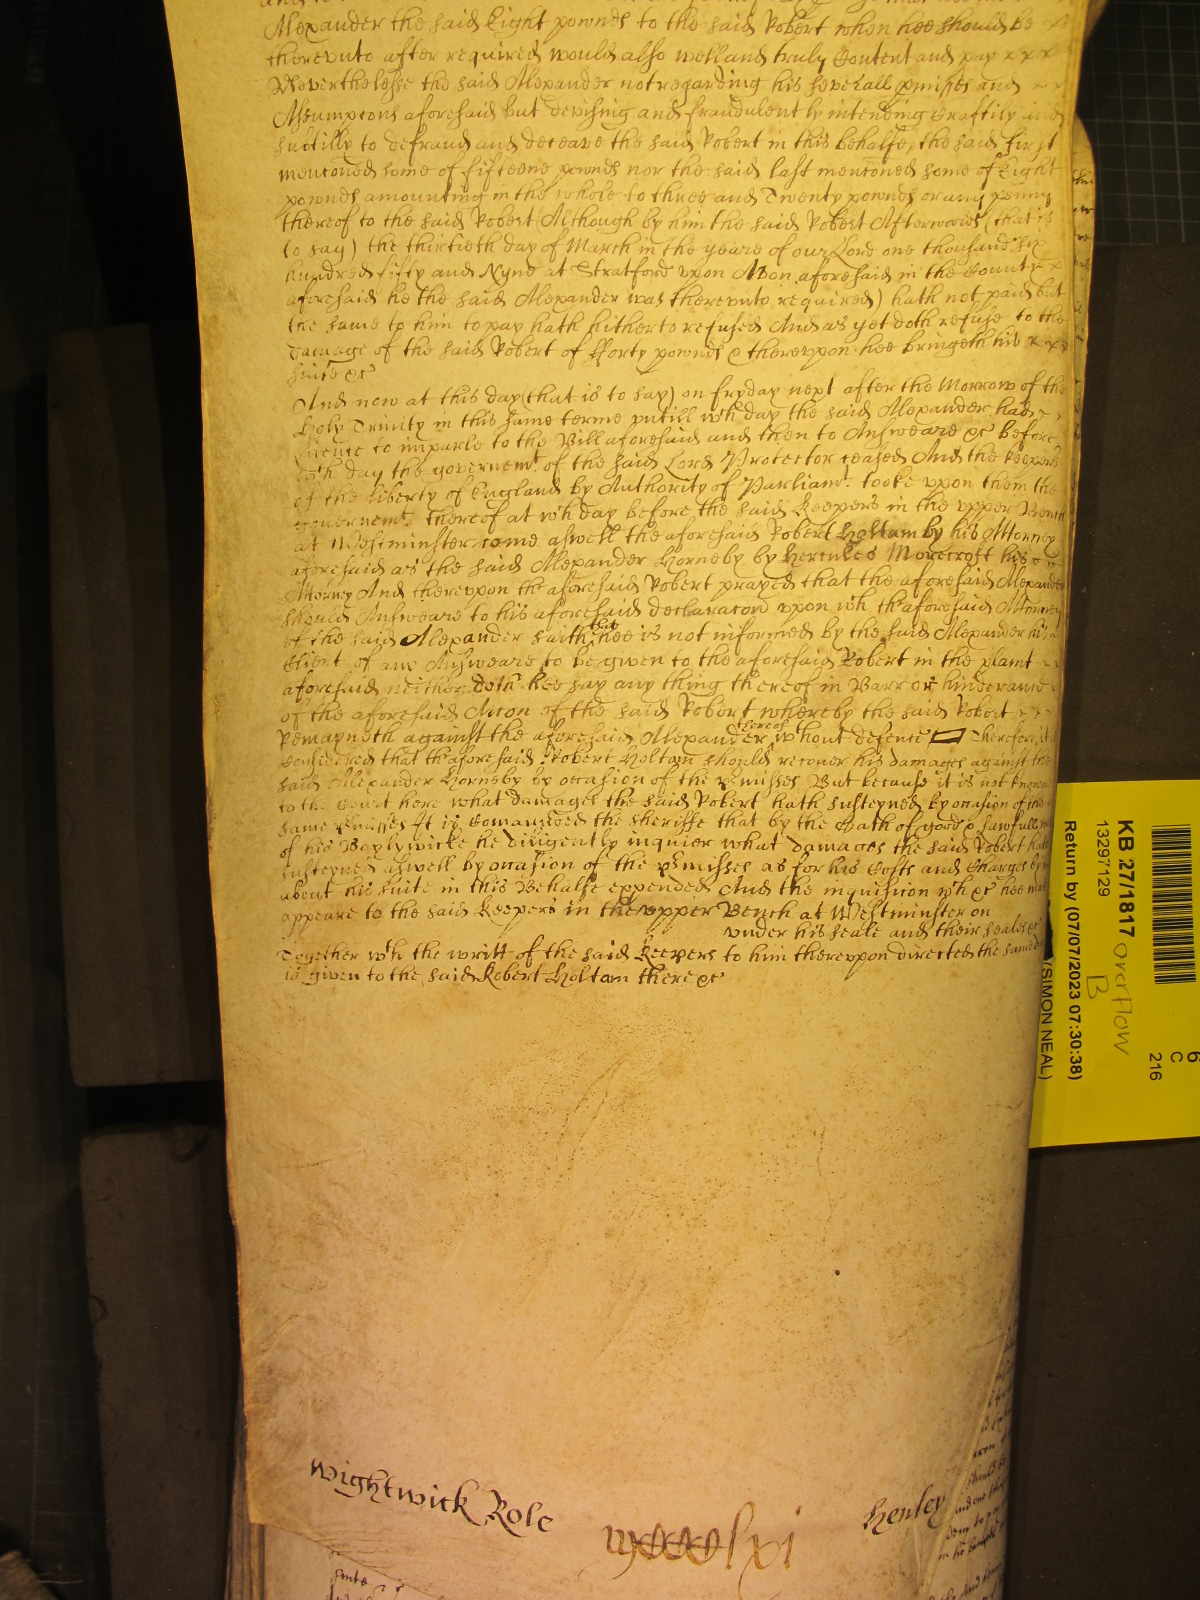 Alexander the said Eight pownds to the said Robert when hee should be
therevnto after required would also well and truly Content and pay x x x
Neverthelesse the said Alexander not regarding his severall pmisses and
Assumptons aforesaid but devising and fraudulently intending Craftily and
suttilly to defraud and deceave the said Robert in this behalfe, the said first
mentoned some of fifteene pownds nor the said last mentoned some of Eight
pownds amounting in the whole to three and Twenty pownds or any penny
thereof to the said Robert (Although by him the said Robert Afterwards (that is
to say) the thirtieth day of March in the yeare of our Lord one thousand six
hundred fifty and Nyne at Stratford vpon Avon aforesaid in the County x
aforesaid he the said Alexander was therevnto required) hath not paid but
the same to him to pay hath hitherto refused And as yet doth refuse to the
damage of the said Robert of fforty pownds & therevpon hee bringeth his x x x
suite &c
And now at this day (that is to say) on fryday next after the Morrow of the
Holy Trinity in this same terme vntill wch day the said Alexander had
licence to imparle to the Bill aforesaid and then to Answeare &c before
wch day the governemt. of the said Lord Protector ceased And the keepers
of the liberty of England by Authority of Parliamt. tooke vpon them the
governemt. thereof at wch day before the said Keepers in the vpper Bench
at Westminster come aswell the aforesaid Robert Holtam by his Attorney
aforesaid as the said Alexander Horneby by Hercules Morecroft his
Attorney And therevpon the aforesaid Robert prayed that the aforesaid Alexander
should Answeare to his aforesaid declaraton vpon wch the aforesaid Attorney
of the said Alexander saith that hee is not informed by the said Alexander his
Client of any Answeare to be given to the aforesaid Robert in the plaint
aforesaid neither doth hee say any thing thereof in Barr or hinderance
of the aforesaid Acton of the said Robert whereby the said Robert
Remayneth against the aforesaid Alexander thereof wthout defence Therefore it is
Considered that the aforesaid Robert Holtam should recover his damages against the
said Alexander Horneby by occasion of the pmisses But because it is not knowne
to the Court here what damages the said Robert hath susteyned by occasion of the
same pmisses It is Comanded the sheriffe that by the Oath of good & lawfull men
of his Baylywicke he diligently inquier what damages the said Robert hath
susteyned aswell by occasion of the pmisses as for his Costs and Charges by him
about his suite in this Behalfe expended And the inquisicon wch &c hee make
appeare to the said Keepers in the vpper Bench at Westminster on
vnder his seale and their seales &c
Together wth the writt of the said Keepers to him therevpon directed the same day
is given to the said Robert Holtam there &c
Wightwick Role
Henley
KB 27/1817 overflow
B
13297129
Return by (07/07/2023 07:30:38)
(SIMON NEAL)
6
C
216